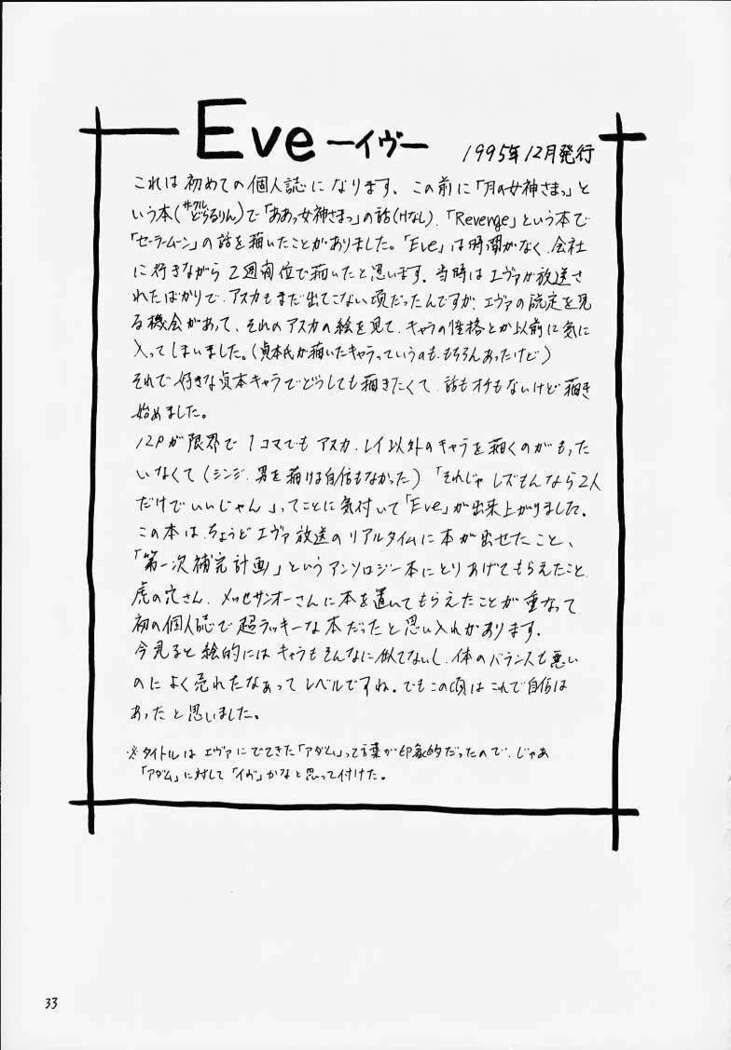 Eve ―イヴ― 1995年12月発行
これは初めての個人誌になります、この前に「月の女神さまっ」と
いう本(サークルどらるりん)で「ああっ女神さまっ」の話(Hなし)、「Revenge」という本で
「セーラームーン」の話を描いたことがありました。「Eve」は時間がなく、会社
に行きながら2週間位で描いたと思います。当時はエヴァが放送さ
れたばかりで、アスカもまだ出てこない頃だったんですが、エヴァの設定を見
る機会があって、それのアスカの絵を見て、キャラの性格とか以前に気に
入ってしまいました。(貞本氏が描いたキャラっていうのも、もちろんあったけど)
それで好きな貞本キャラでどうしても描きたくて、話もオチもないけど描き
始めました。
12Pが限界で1コマでもアスカ、レイ以外のキャラを描くのがもった
いなくて(シンジ、男を描ける自信もなかった)「それじゃレズもんなら2人
だけでいいじゃん」ってことに気付いて「Eve」が出来上がりました。
この本は、ちょうどエヴァ放送のリアルタイムに本が出せたこと、
「第一次補完計画」というアンソロジー本にとりあげてもらえたこと
虎の穴さん、メッセサンオーさんに本を置いてもらえたことが重なって
初の個人誌で超ラッキーな本だったと思い入れがあります。
今見ると絵的にはキャラもそんなに似てないし、体のバランスも悪い
のによく売れたなぁってレベルですね。でもこの頃はこれで自信は
あったと思いました。
※タイトルはエヴァにでてきた「アダム」って言葉が印象的だったので、じゃあ
「アダム」に対して「イヴ」かなと思って付けた。
33